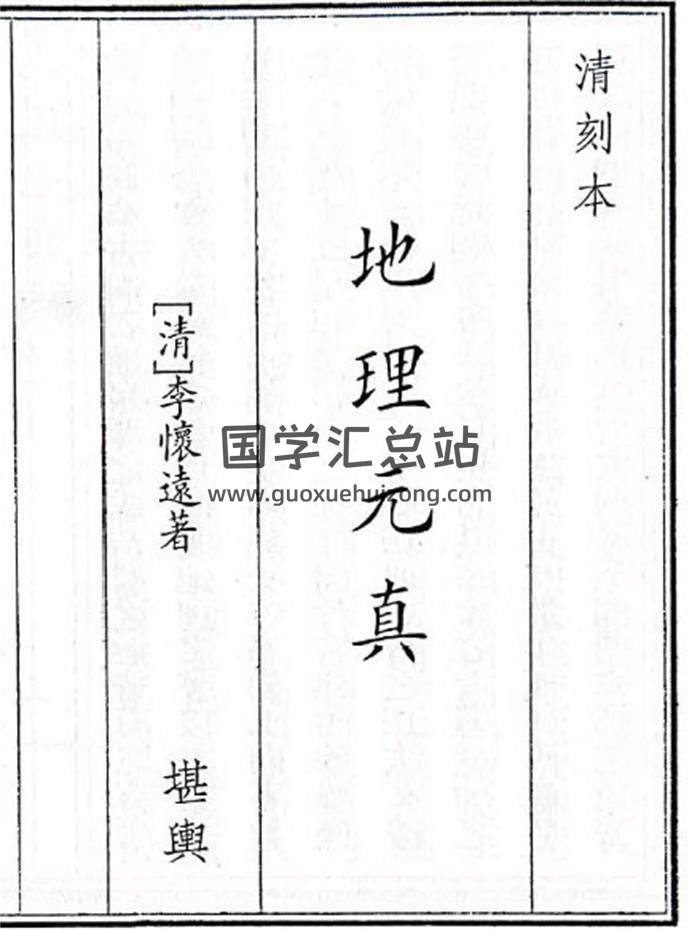 清刻本
地理元真
[清]李懷遠著
堪輿
国学汇总站
www.guoxuehuizong.com